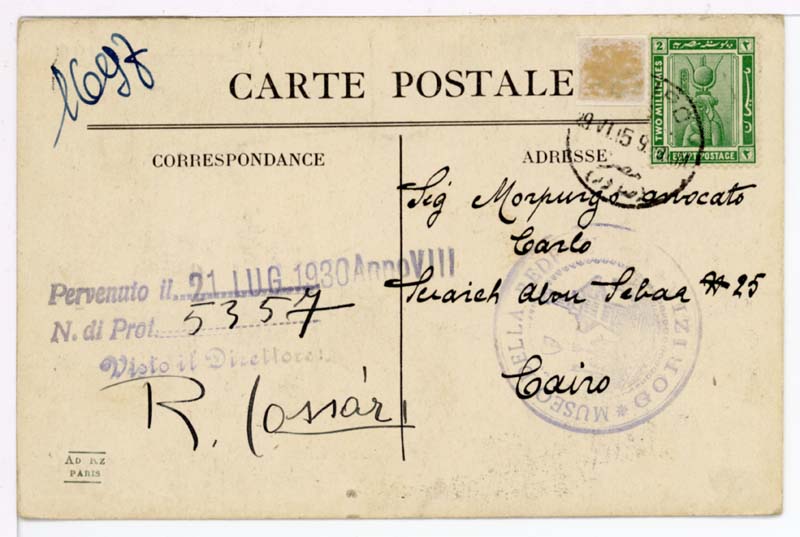 1697
CARTE POSTALE
2
TWO MILLIEMES
EGYPT POSTAGE
٢
CAIRO
CORRESPONDANCE
ADRESSE
Sig Morpurgo avocato
Carlo
Scraich Abou Sebaa # 25
Cairo
Pervenuto il 21 LUG. 1930 Anno VIII
N. di Prot. 5357
Visto il Direttore:
R. Cossár
MUSEO DELLA REDE
GORIZI
PARIS